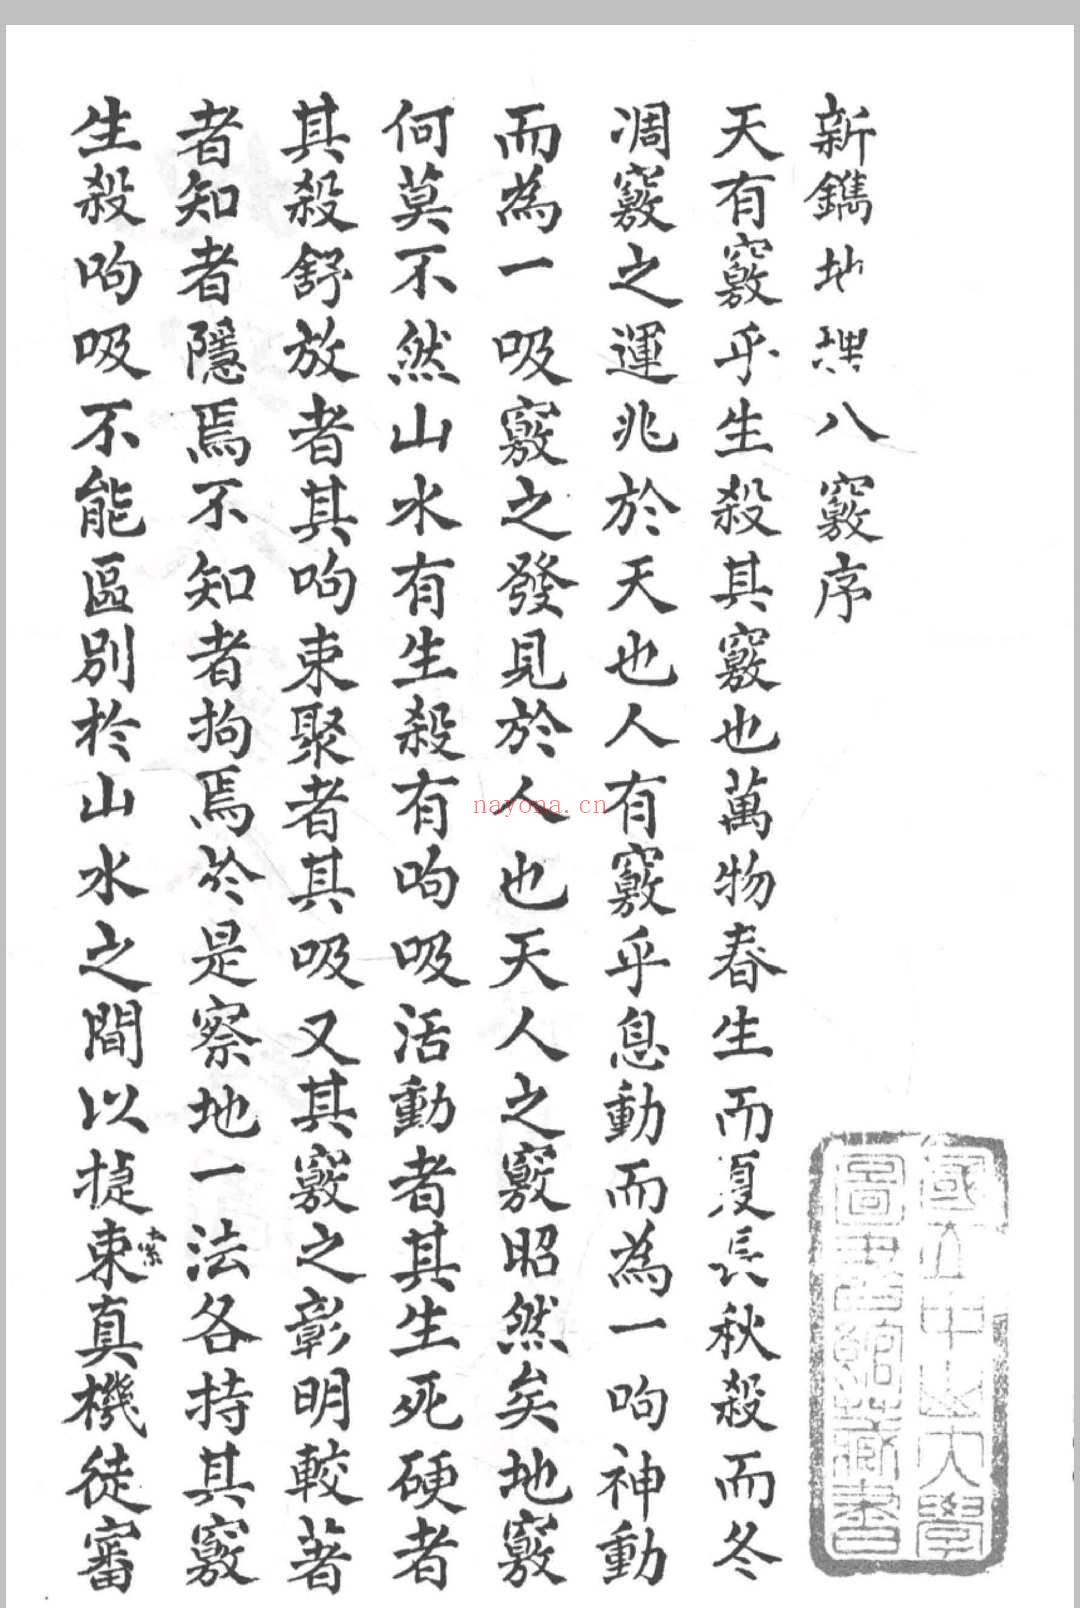 新鐫地理八竅序
天有竅乎生殺其竅也萬物春生而夏長秋殺而冬
凋竅之運兆於天也人有竅乎息動而為一呴神動
而為一吸竅之發見於人也天人之竅昭然矣地竅
何莫不然山水有生殺有呴吸活動者其生死硬者
其殺舒放者其呴束聚者其吸又其竅之彰明較著
者知者隱焉不知者拘焉於是察地一法各持其竅
生殺呴吸不能區別於山水之間以捷束真機徒審
國立中山大學
圖書館藏書
nayona.cn